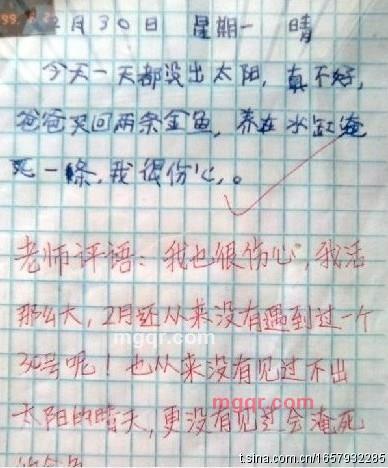 2月30日 星期一 晴
今天一天都没出太阳，真不好，
爸爸买回两条金鱼，养在水缸淹
死一條，我很伤心。
老师评语：我也很伤心，我活
那么大，2月还从来没有遇到过一个
30号呢！也从来没有见过不出
太阳的晴天，更没有见过会淹死
的金鱼
mgqr.com
mgqr.com
t.sina.com.cn/1657932285